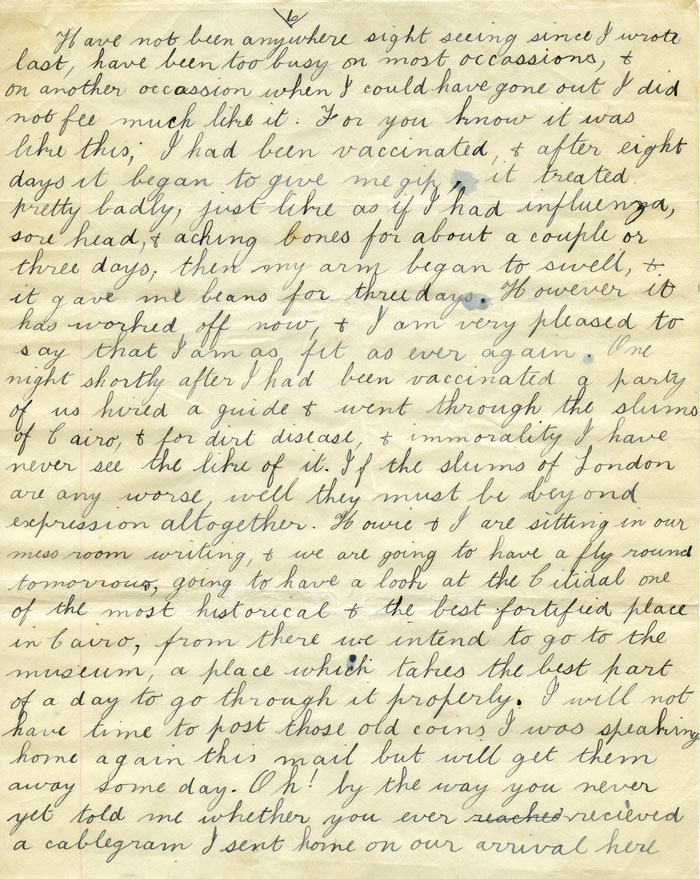 6
Have not been anywhere sight seeing since I wrote
last, have been too busy on most occassions, &
on another occassion when I could have gone out I did
not fee much like it. For you know it was
like this; I had been vaccinated, & after eight
days it began to give me gip, it treated
pretty badly, just like as if I had influenza,
sore head, & aching bones for about a couple or
three days, then my arm began to swell, &
it gave me beans for three days. However it
has worked off now, & I am very pleased to
say that I am as fit as ever again. One
night shortly after I had been vaccinated a party
of us hired a guide & went through the slums
of Cairo, & for dirt disease, & immorality I have
never see the like of it. If the slums of London
are any worse, well they must be beyond
expression altogether. Howie & I are sitting in our
mess room writing, & we are going to have a fly round
tomorrow, going to have a look at the Citidal one
of the most historical & the best fortified place
in Cairo, from there we intend to go to the
museum, a place which takes the best part
of a day to go through it properly. I will not
have time to post those old coins I was speaking
home again this mail but will get them
away some day. Oh! by the way you never
yet told me whether you ever reached recieved
a cablegram I sent home on our arrival here